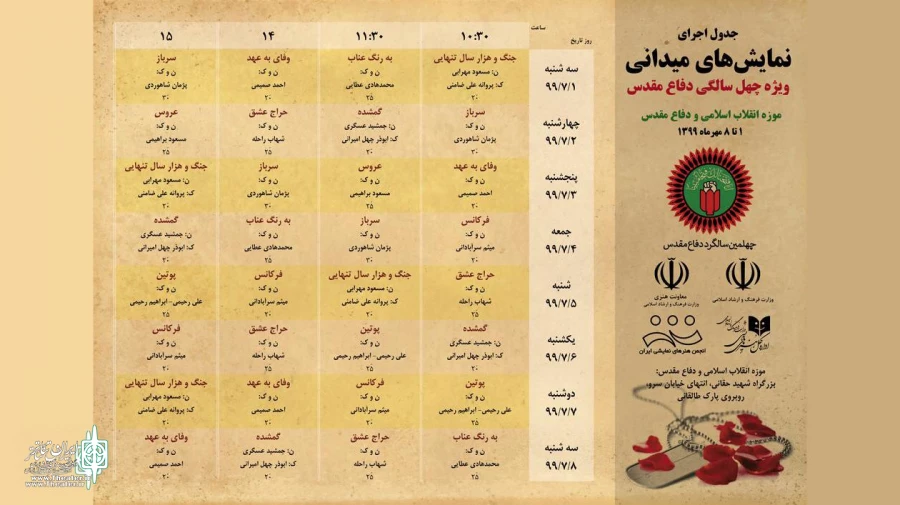 جدول اجرای
نمایش‌های میدانی
ویژه چهل سالگی دفاع مقدس
موزه انقلاب اسلامی و دفاع مقدس
۱ تا ۸ مهرماه ۱۳۹۹
چهلمین سالگرد دفاع مقدس
وزارت فرهنگ و ارشاد اسلامی
معاونت هنری
وزارت فرهنگ و ارشاد اسلامی
انجمن هنرهای نمایشی ایران
موزه انقلاب اسلامی و دفاع مقدس:
بزرگراه شهید حقانی، انتهای خیابان سرو،
روبروی پارک طالقانی
ساعت
روز تاریخ
۱۰:۳۰ ۱۱:۳۰ ۱۴ ۱۵
سه شنبه
۹۹/۷/۱
جنگ و هزار سال تنهایی
ن: مسعود مهرابی
ک: پروانه علی ضامنی
۲۰
به رنگ عناب
ن و ک:
محمدهادی عطایی
۲۵
وفای به عهد
ن و ک:
احمد صمیمی
۲۰
سرباز
ن و ک:
پژمان شاهوردی
۳۰
چهارشنبه
۹۹/۷/۲
سرباز
ن و ک:
پژمان شاهوردی
۳۰
گمشده
ن: جمشید عسگری
ک: ابوذر چهل امیرانی
۲۰
حراج عشق
ن و ک:
شهاب راحله
۲۵
عروس
ن و ک:
مسعود براهیمی
۲۵
پنجشنبه
۹۹/۷/۳
وفای به عهد
ن و ک:
احمد صمیمی
۲۰
عروس
ن و ک:
مسعود براهیمی
۲۵
سرباز
ن و ک:
پژمان شاهوردی
۳۰
جنگ و هزار سال تنهایی
ن: مسعود مهرابی
ک: پروانه علی ضامنی
۲۰
جمعه
۹۹/۷/۴
فرکانس
ن و ک:
میثم سرآبادانی
۲۰
سرباز
ن و ک:
پژمان شاهوردی
۳۰
به رنگ عناب
ن و ک:
محمدهادی عطایی
۲۵
گمشده
ن: جمشید عسگری
ک: ابوذر چهل امیرانی
۲۰
شنبه
۹۹/۷/۵
حراج عشق
ن و ک:
شهاب راحله
۲۵
جنگ و هزار سال تنهایی
ن: مسعود مهرابی
ک: پروانه علی ضامنی
۲۰
فرکانس
ن و ک:
میثم سرآبادانی
۲۰
پوتین
ن و ک:
علی رحیمی- ابراهیم رحیمی
۲۵
یکشنبه
۹۹/۷/۶
گمشده
ن: جمشید عسگری
ک: ابوذر چهل امیرانی
۲۰
پوتین
ن و ک:
علی رحیمی- ابراهیم رحیمی
۲۵
حراج عشق
ن و ک:
شهاب راحله
۲۵
فرکانس
ن و ک:
میثم سرآبادانی
۲۰
دوشنبه
۹۹/۷/۷
پوتین
ن و ک:
علی رحیمی- ابراهیم رحیمی
۲۵
فرکانس
ن و ک:
میثم سرآبادانی
۲۰
وفای به عهد
ن و ک:
احمد صمیمی
۲۰
جنگ و هزار سال تنهایی
ن: مسعود مهرابی
ک: پروانه علی ضامنی
۲۰
سه شنبه
۹۹/۷/۸
به رنگ عناب
ن و ک:
محمدهادی عطایی
۲۵
حراج عشق
ن و ک:
شهاب راحله
۲۵
گمشده
ن: جمشید عسگری
ک: ابوذر چهل امیرانی
۲۰
وفای به عهد
ن و ک:
احمد صمیمی
۲۰
ایران تئاتر